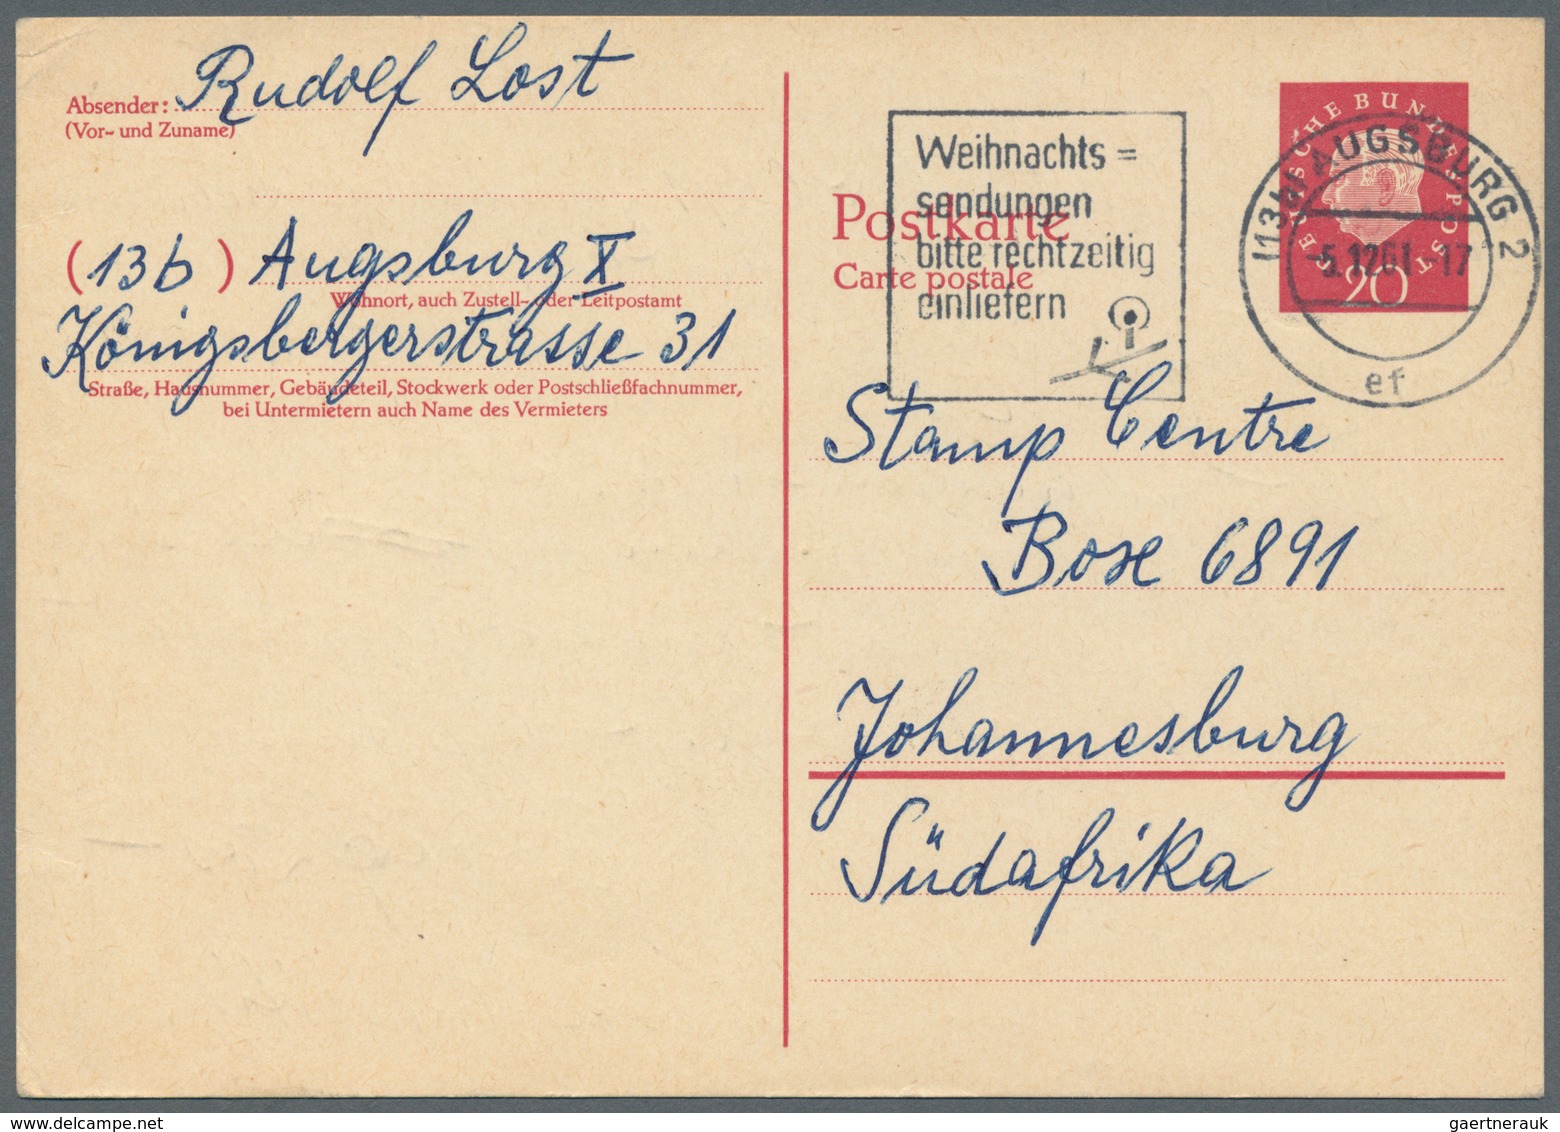 Absender: Rudolf Lost
(Vor- und Zuname)
(13b) Augsburg X
Wohnort, auch Zustell- oder Leitpostamt
Königsbergerstrasse 31
Straße, Hausnummer, Gebäudeteil, Stockwerk oder Postschließfachnummer,
bei Untermietern auch Name des Vermieters
Weihnachts=
sendungen
bitte rechtzeitig
einliefern
Postkarte
Carte postale
DEUTSCHE BUNDESPOST
20
(13b) AUGSBURG 2
-5.12.61-17
ef
Stamp Centre
Boxe 6891
Johannesburg
Südafrika
gaertnerauk